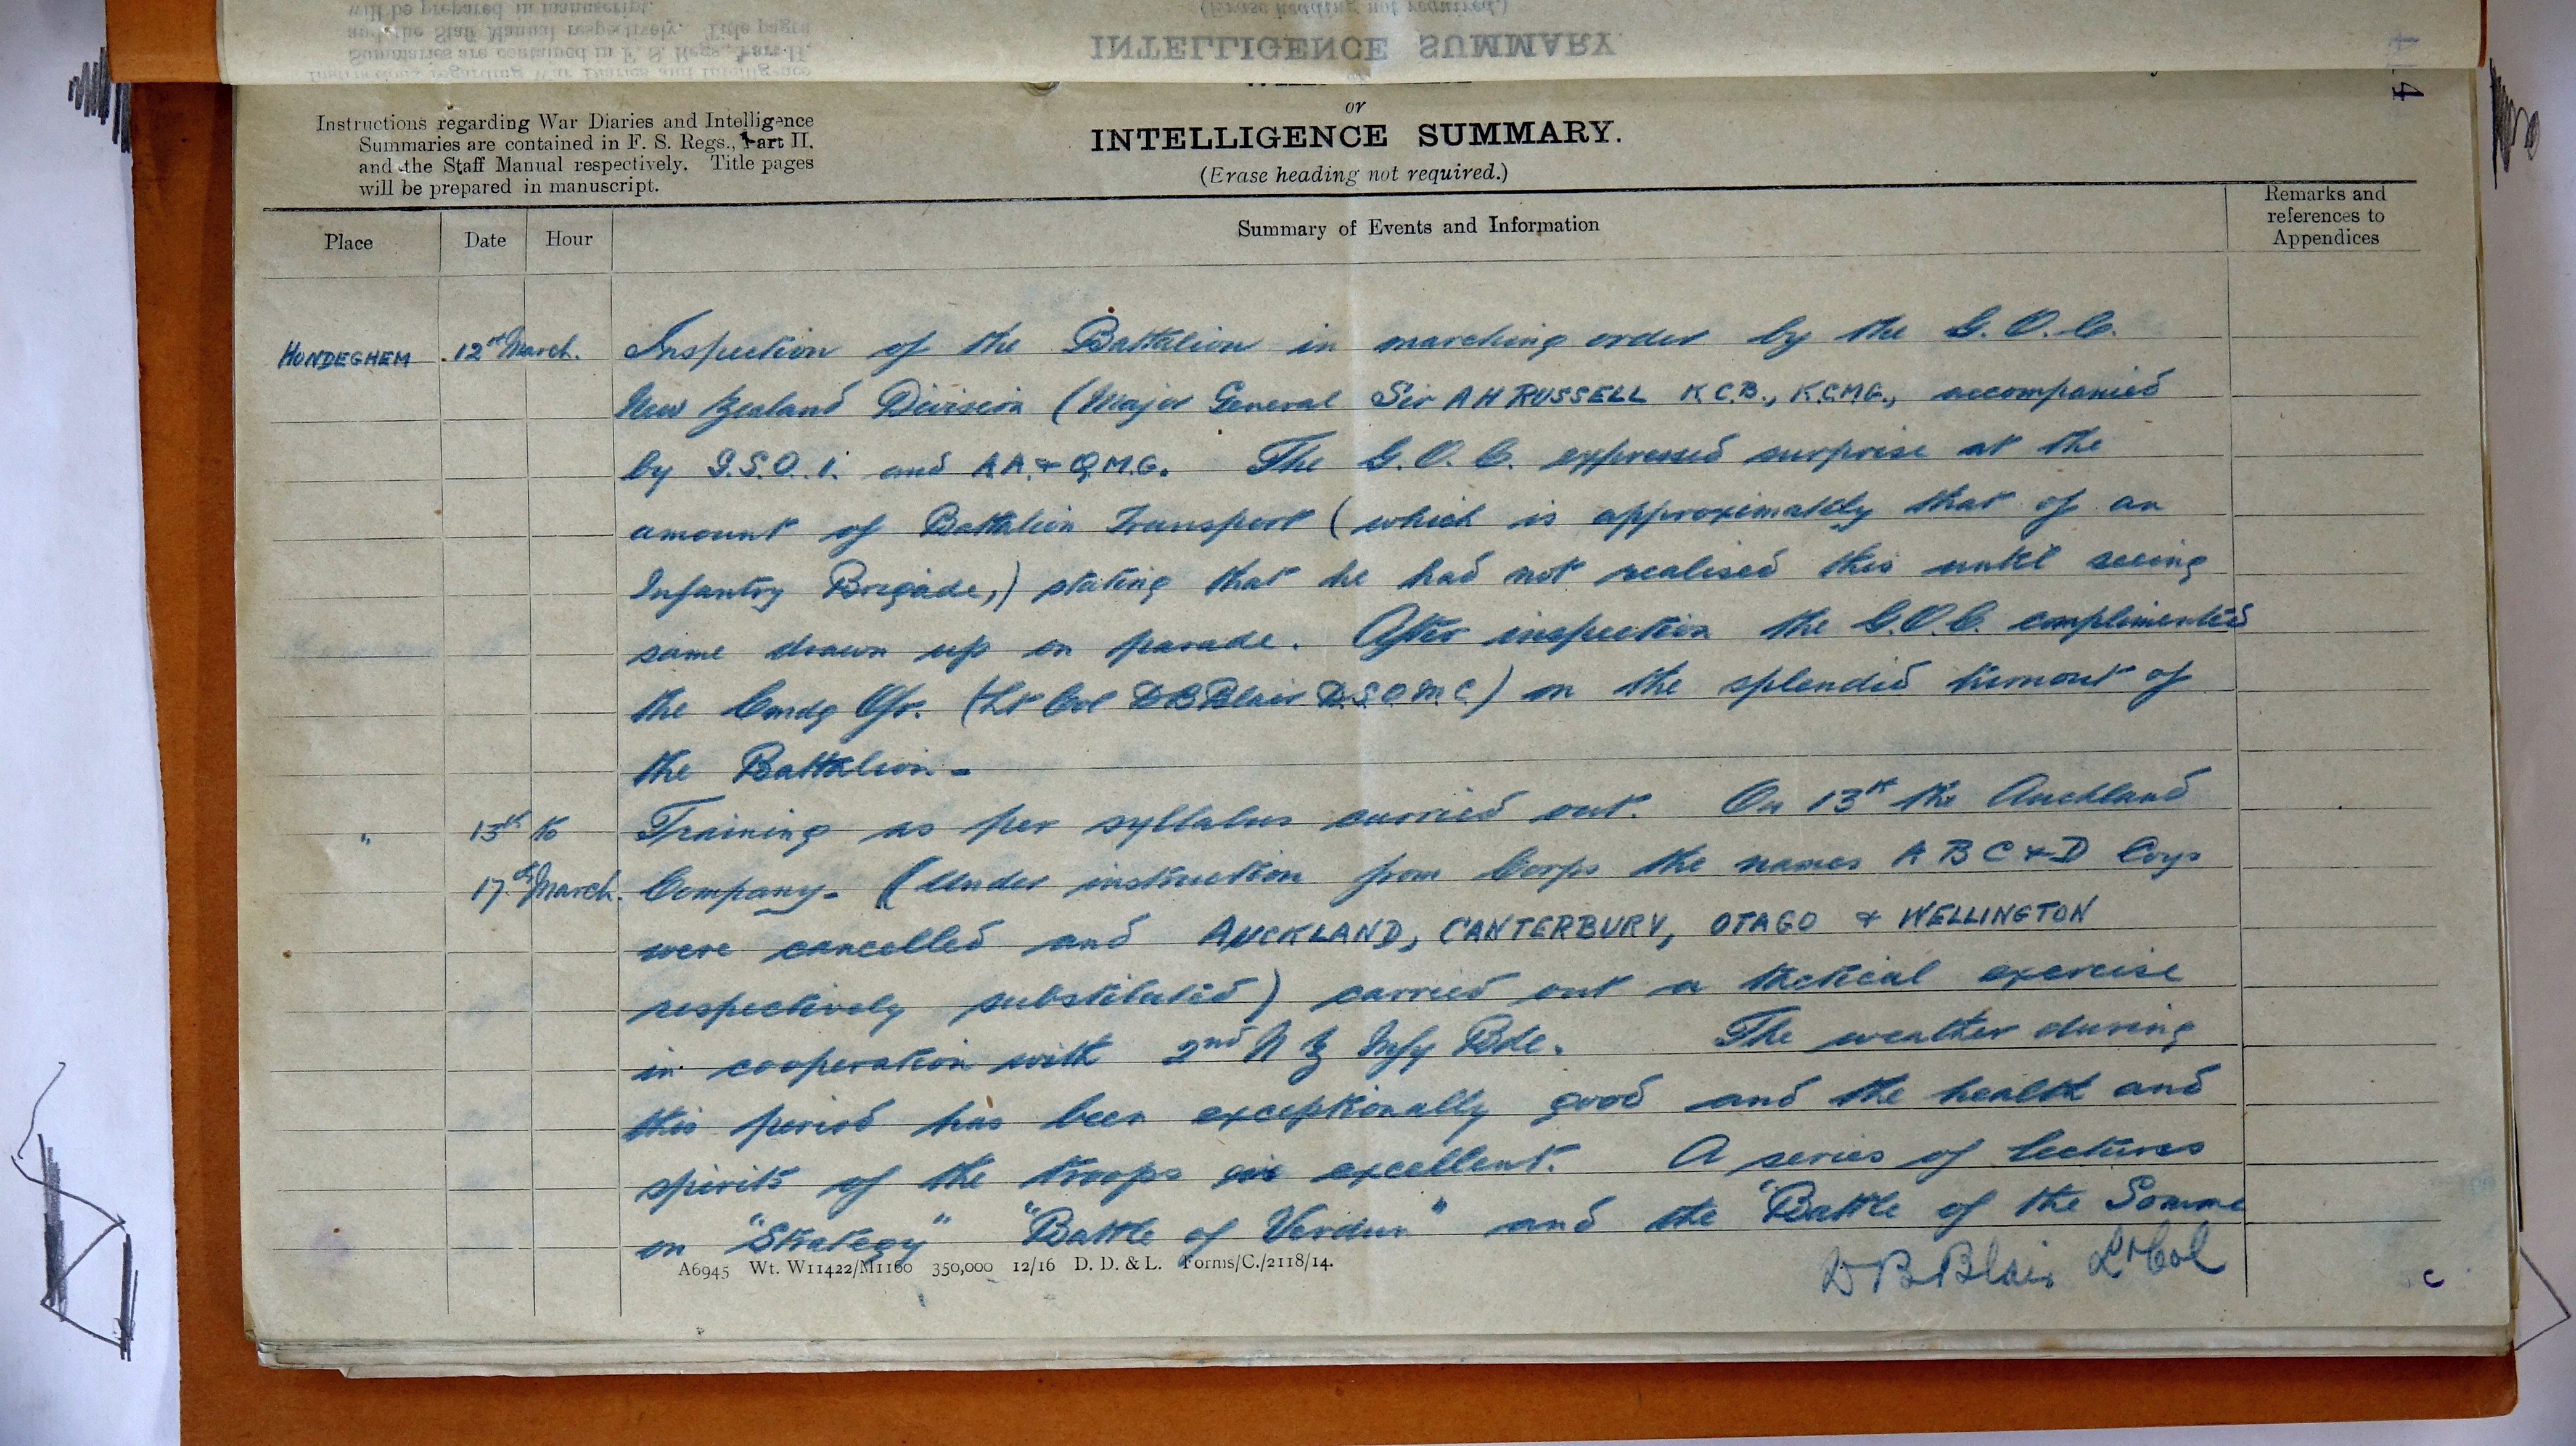 Instructions regarding War Diaries and Intelligence
Summaries are contained in F. S. Regs., Part II.
and the Staff Manual respectively. Title pages
will be prepared in manuscript.
or
INTELLIGENCE SUMMARY.
(Erase heading not required.)
Place Date Hour Summary of Events and Information
Remarks and
references to
Appendices
HONDEGHEM 12th March. Inspection of the Battalion in marching order by the G. O. C.
New Zealand Division (Major General Sir A H RUSSELL K.C.B., K.C.M.G., accompanied
by G.S.O.1. and A.A. & Q.M.G. The G.O.C. expressed surprise at the
amount of Battalion Transport (which is approximately that of an
Infantry Brigade,) stating that he had not realised this until seeing
same drawn up on parade. After inspection the G.O.C. complimented
the Cmdg Ofr. (Lt Col D B Blair D.S.O. M.C.) on the splendid turnout of
the Battalion -
" 13th to Training as per syllabus carried out. On 13th the Auckland
17th March. Company - (Under instruction from Corps the names A B C & D Coys
were cancelled and AUCKLAND, CANTERBURY, OTAGO & WELLINGTON
respectively substituted) carried out a tactical exercise
in cooperation with 2nd N Z Infy Bde. The weather during
this period has been exceptionally good and the health and
spirits of the troops excellent. A series of lectures
on "Strategy" "Battle of Verdun" and the "Battle of the Somme
A6945 Wt. W11422/M1160 350,000 12/16 D. D. & L. Forms/C./2118/14.
D B Blair Lt Col
c